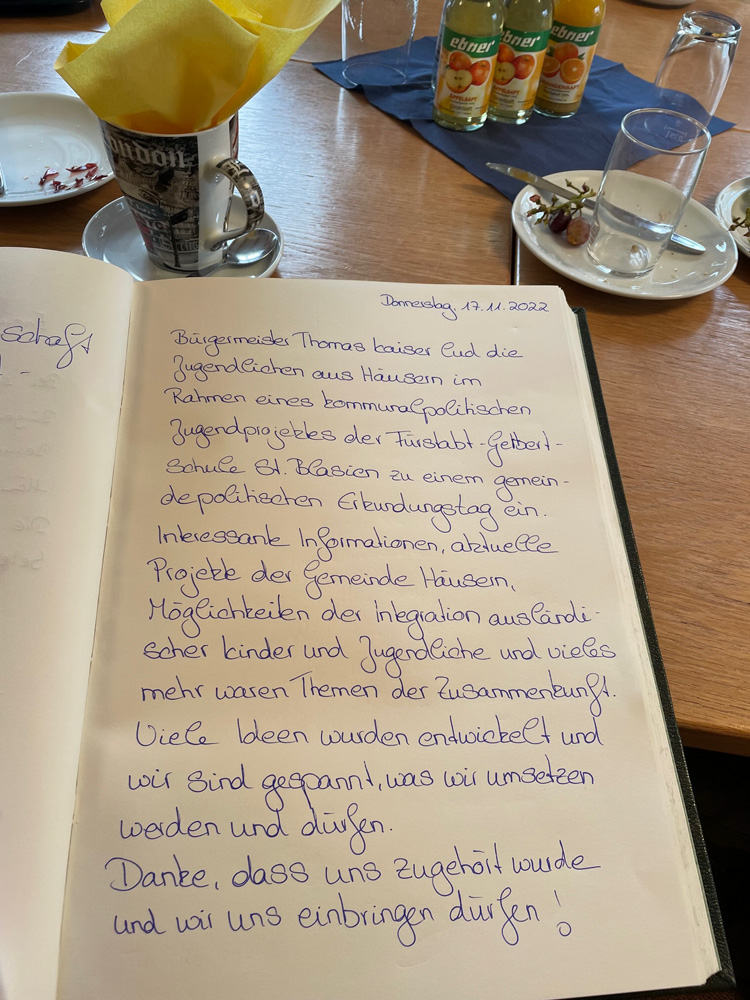 ondon
ebner
APFELSAFT
ebner
ebner
Donnerstag, 17.11.2022
schaft
Bürgermeister Thomas kaiser lud die
Jugendlichen aus Häusern im
Rahmen eines kommunalpolitischen
Jugendprojektes der Fürstabt-Gerbert-
Schule St. Blasien zu einem gemein-
depolitischen Erkundungstag ein.
Interessante Informationen, aktuelle
Projekte der Gemeinde Häusern,
Möglichkeiten der Integration ausländi-
scher kinder und Jugendliche und vieles
mehr waren Themen der Zusammenkunft.
Viele Ideen wurden entwickelt und
wir sind gespannt, was wir umsetzen
werden und dürfen.
Danke, dass uns zugehört wurde
und wir uns einbringen dürfen !